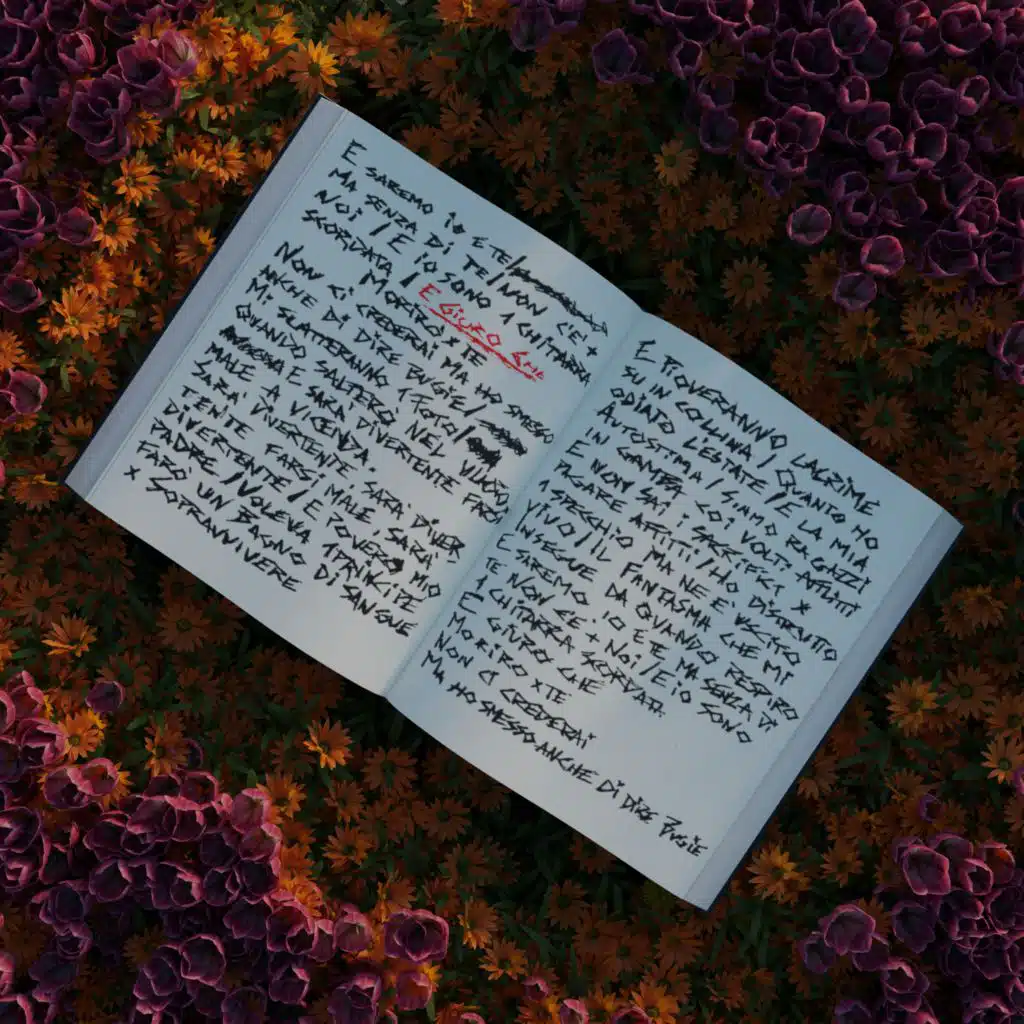 E SAREMO IO E TE /
MA SENZA DI TE / NON C'E' +
NOI / E IO SONO 1 CHITARRA
SCORDATA / E GIURO CHE
MORIRO' x TE
NON CI CREDERAI MA HO SMESSO
ANCHE DI DIRE BUGIE /
MI SCATTERANNO 1 FOTO /
QUANDO SALTERO' NEL VUOTO
E SARA' DIVERTENTE FARCI
MALE A VICENDA.
SARA' DIVERTENTE, SARA' DIVER
TENTE FARSI MALE, SARAI
DIVERTENTE / E POVERO MIO
PADRE / VOLEVA 1 PRINCIPE
FARO' UN BAGNO DI SANGUE
x SOPRAVVIVERE
E PIOVERANNO LACRIME
SU IN COLLINA / QUANTO HO
ODIATO L'ESTATE / E LA MIA
AUTOSTIMA / SIAMO RAGAZZI
IN GAMBA COI VOLTI AFFLITTI
E NON SAI I SACRIFICI x
PAGARE AFFITTI / HO DISTRUTTO
1 SPECCHIO MA NE E' USCITO
VIVO / IL FANTASMA CHE MI
INSEGUE DA QUANDO RESPIRO
E SAREMO IO E TE MA SENZA DI
TE NON C'E + NOI / E IO SONO
1 CHITARRA SCORDATA
E GIURO CHE
MORIRO x TE
NON CI CREDERAI
MA HO SMESSO ANCHE DI DIRE BUGIE